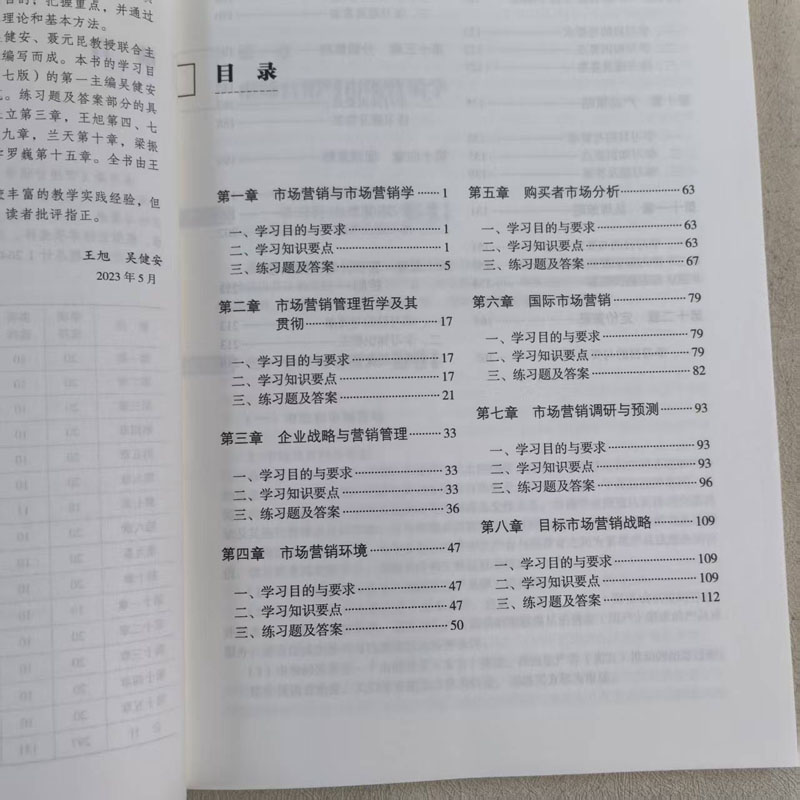 理论和基本方法。
编写而成。本书的学习目
七版）的第一主编吴健安
练习题及答案部分的具
立第三章，王旭第四、七
九章，兰天第十章，梁振
罗巍第十五章。全书由王
丰富的教学实践经验，但
读者批评指正。
王旭 吴健安
2023年5月
目 录
第一章 市场营销与市场营销学……1
一、学习目的与要求……1
二、学习知识要点……1
三、练习题及答案……5
第二章 市场营销管理哲学及其
贯彻……17
一、学习目的与要求……17
二、学习知识要点……17
三、练习题及答案……21
第三章 企业战略与营销管理……33
一、学习目的与要求……33
二、学习知识要点……33
三、练习题及答案……36
第四章 市场营销环境……47
一、学习目的与要求……47
二、学习知识要点……47
三、练习题及答案……50
第五章 购买者市场分析……63
一、学习目的与要求……63
二、学习知识要点……63
三、练习题及答案……67
第六章 国际市场营销……79
一、学习目的与要求……79
二、学习知识要点……79
三、练习题及答案……82
第七章 市场营销调研与预测……93
一、学习目的与要求……93
二、学习知识要点……93
三、练习题及答案……96
第八章 目标市场营销战略……109
一、学习目的与要求……109
二、学习知识要点……109
三、练习题及答案……112